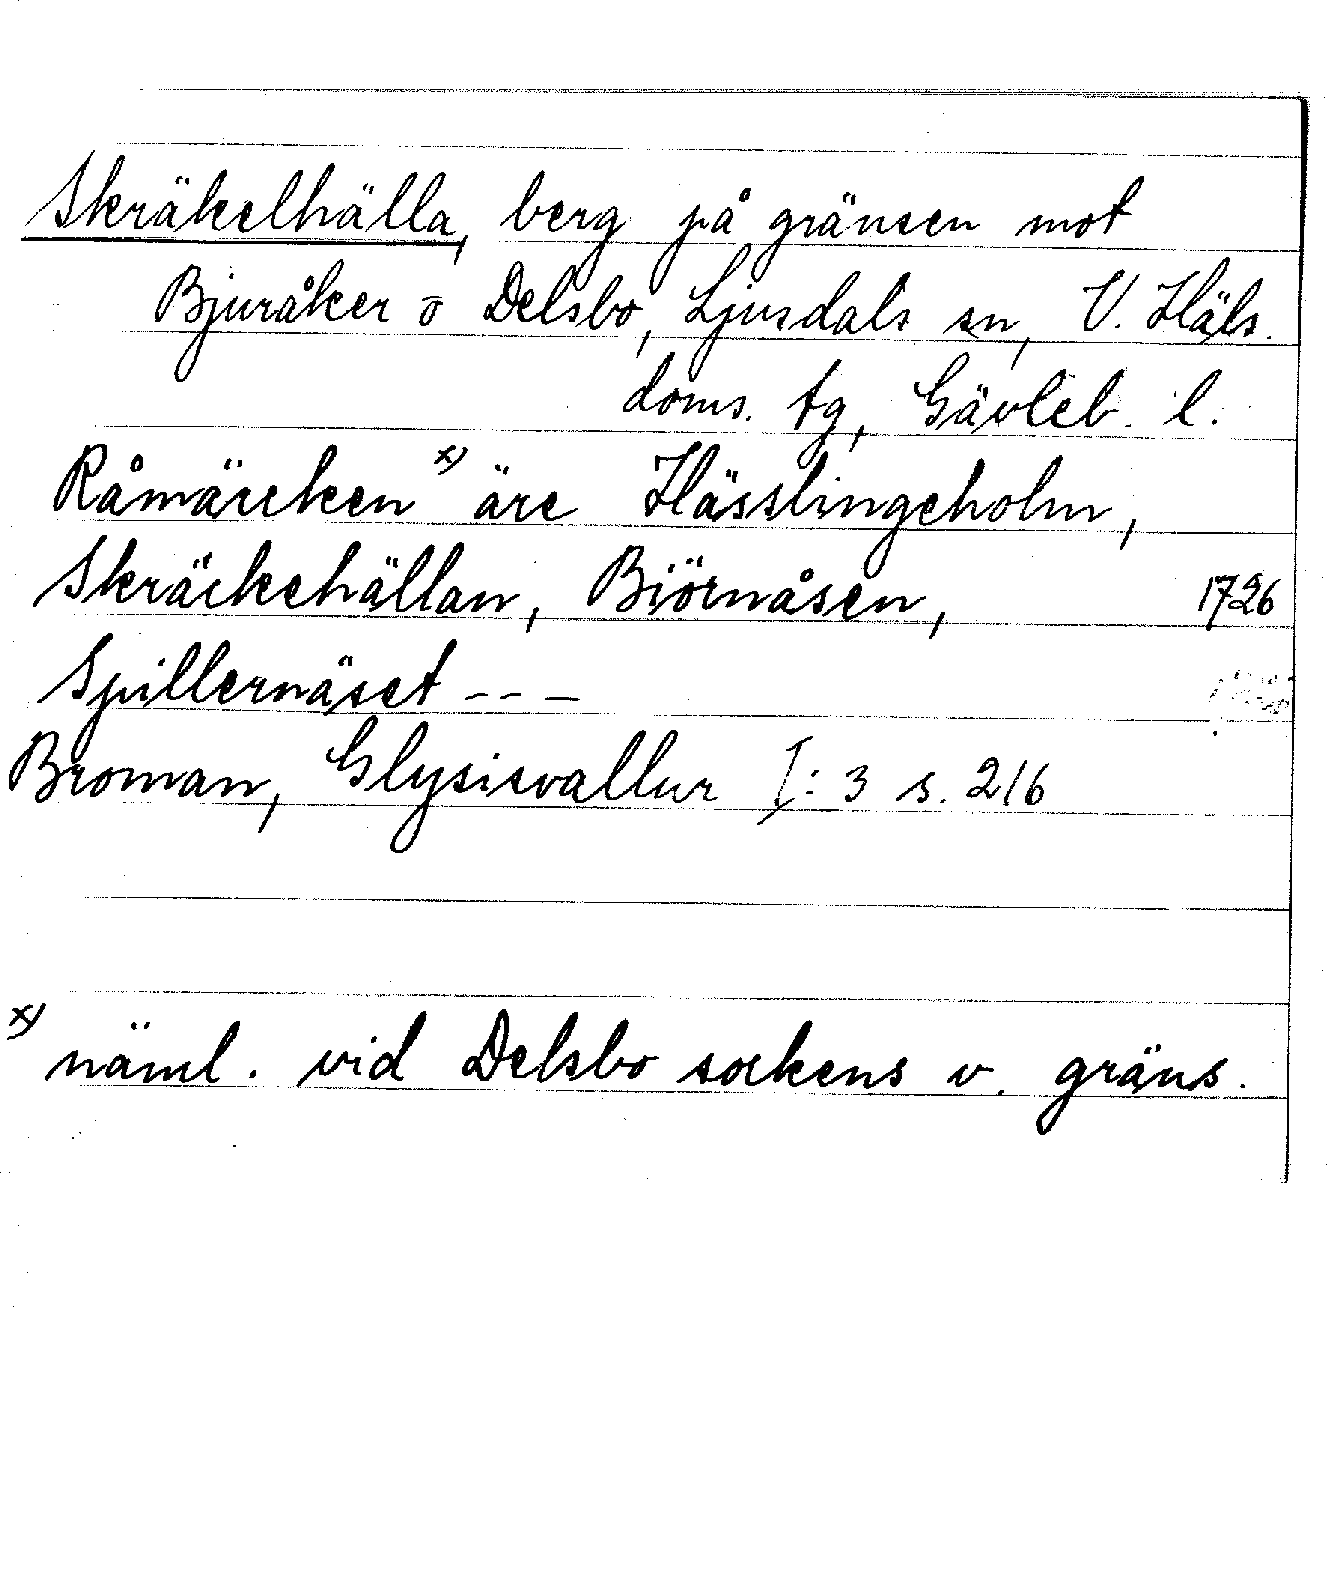 Skräkelhälla, berg på gränsen mot
Bjuråker o Delsbo, Ljusdals sn, V. Häls.
doms. tg, Gävleb. l.
Råmärcken x) äre Hässlingeholm,
Skräckehällan, Biörnåsen, 1726
Spillernäset - - -
Broman, Glysisvallur I: 3 s. 216
x) näml. vid Delsbo sockens v. gräns.